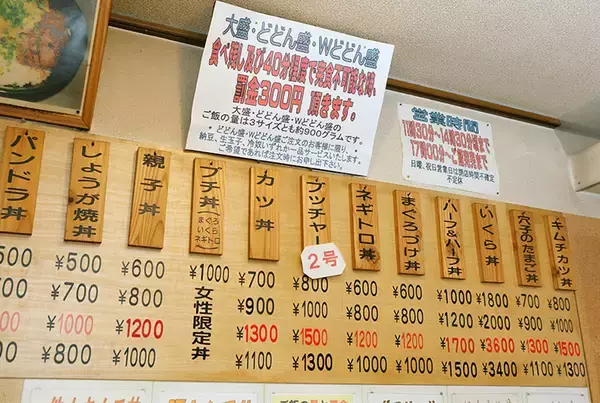 大盛・どどん盛・Wどどん盛
食べ残し及び40分程度で完食不可能な時、
罰金300円 頂きます。
大盛・どどん盛・Wどどん盛の
ご飯の量は3サイズとも約900グラムです。
・どどん盛・Wどどん盛ご注文のお客様に限り、
納豆、生玉子、冷奴いずれか一品サービスいたします。
ご希望であれば注文時にお申し出下さい。
営業時間
11時30分〜14時30分頃まで
17時00分〜ご飯終了まで
日曜、祝日営業日は閉店時間不確定
不定休
パンドラ丼
しょうが焼丼
親子丼
プチ丼
まぐろ
いくら
ネギトロ
カツ丼
ブッチャー
2号
ネギトロ丼
まぐろづけ丼
ハーフ&ハーフ丼
いくら丼
穴子のたまご丼
キムチカツ丼
¥500 ¥500 ¥600 ¥1000 ¥700 ¥800 ¥600 ¥600 ¥1000 ¥1800 ¥700 ¥800
¥700 ¥700 ¥800 ¥900 ¥1000 ¥800 ¥800 ¥1200 ¥2000 ¥900 ¥1000
¥1000 ¥1200 ¥1300 ¥1500 ¥1200 ¥1200 ¥1700 ¥3600 ¥1300 ¥1500
¥800 ¥800 ¥1000 ¥1100 ¥1300 ¥1000 ¥1000 ¥1500 ¥3400 ¥1100 ¥1300
女性限定丼